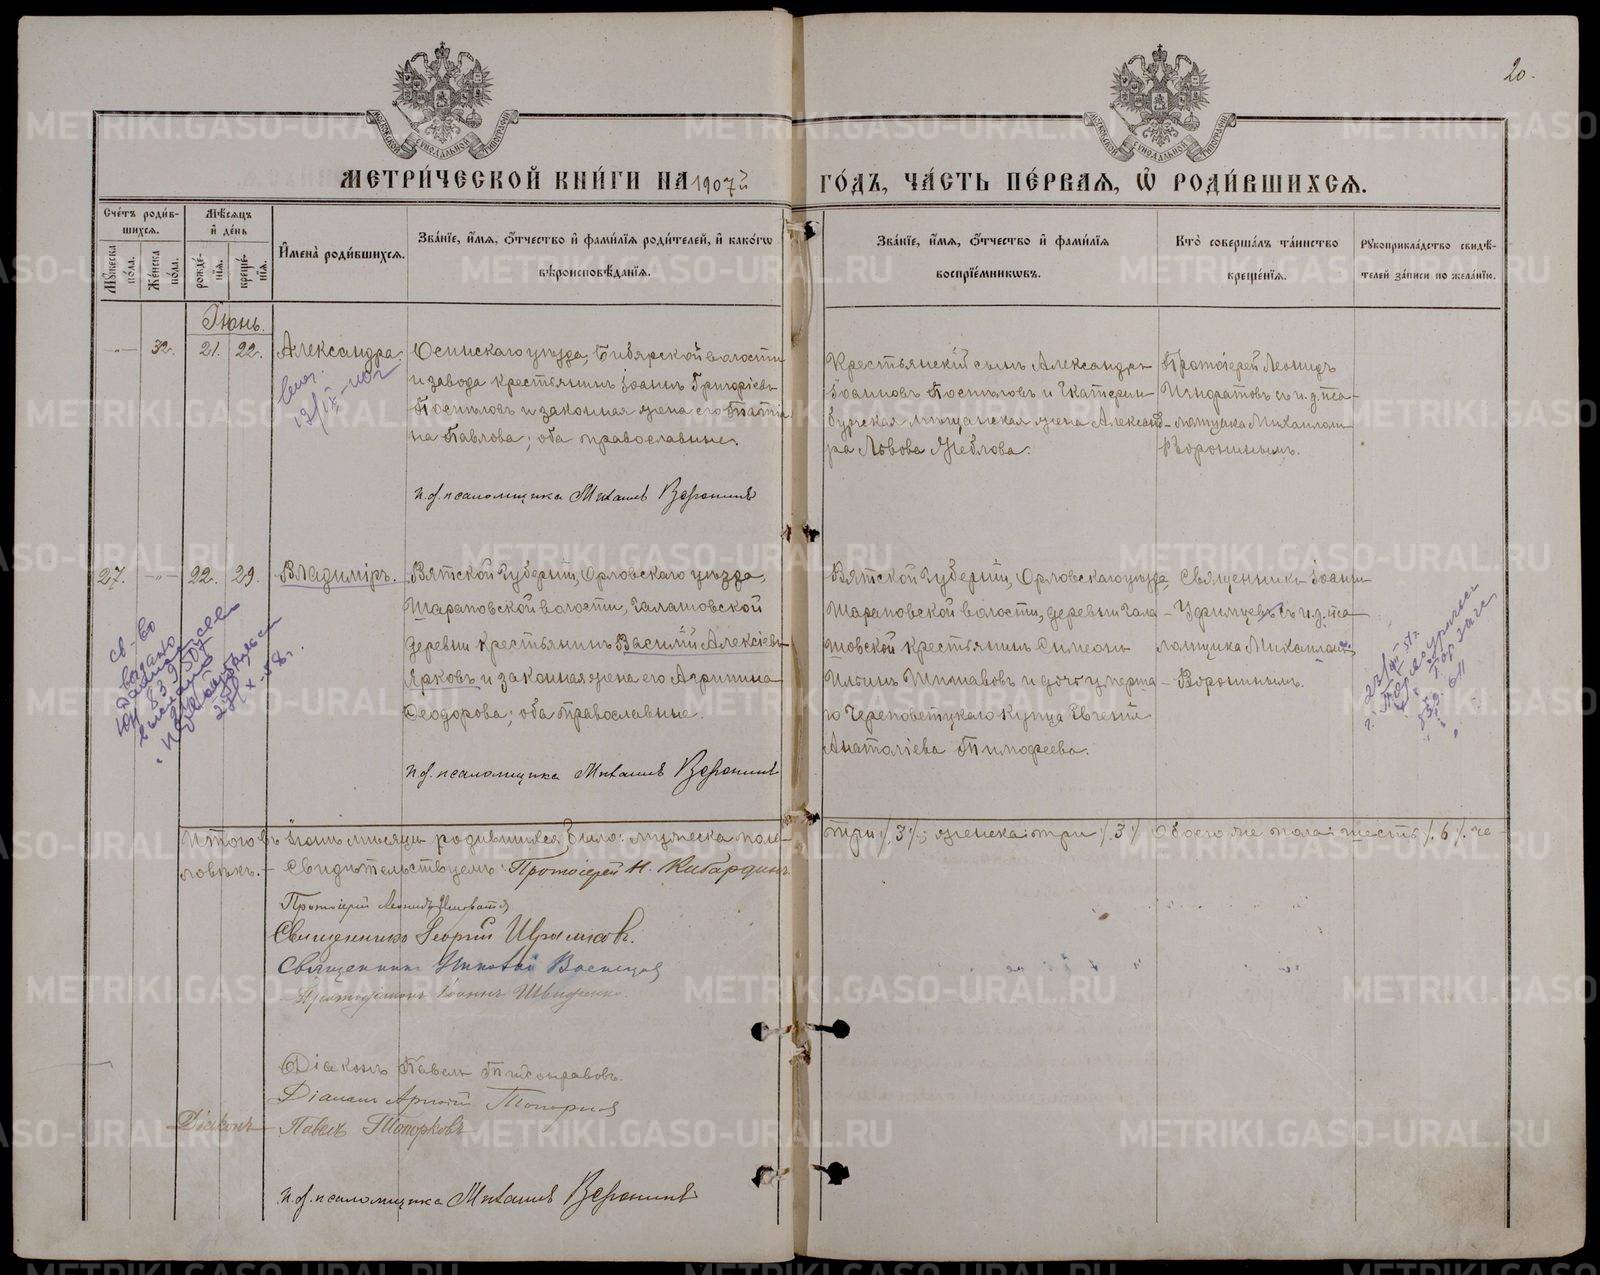 20.
МОСКОВСКОЙ СѴНОДАЛЬНОЙ ТИПОГРАФІИ
МОСКОВСКОЙ СѴНОДАЛЬНОЙ ТИПОГРАФІИ
МЕТРИ́ЧЕСКОЙ КНИ́ГИ НА 1907й ГО́ДЪ, ЧА́СТЬ ПЕ́РВАѦ, Ѡ҆ РОДИ́ВШИХСѦ.
Сче́тъ роди́в-
шихсѧ.
Мꙋ́жеска по́ла.
Же́нска по́ла.
Мѣ́сѧцъ
и҆ де́нь
рожде́нїѧ.
креще́нїѧ.
И҆мена̀ роди́вшихсѧ.
Зва́нїе, и҆́мѧ, ѻ҆́тчество и҆ фами́лїѧ роди́телей, и҆ како́гѡ
вѣроисповѣ́данїѧ.
Зва́нїе, и҆́мѧ, ѻ҆́тчество и҆ фами́лїѧ
воспрїе́мникѡвъ.
Кто̀ соверша́лъ та́инство
креще́нїѧ.
Рꙋкоприкла́дство свидѣ́-
телей за́писи по жела́нїю.
Іюнь.
-„- 32. 21. 22. Александра.
Осинскаго уѣзда, Бизярской волости
и завода крестьянинъ Іоаннъ Григоріевъ
Поспѣловъ и законная жена его Татіа
на Павлова; оба православные.
и.д. псаломщика Михаилъ Воронинъ
Крестьянскій сынъ Александръ
Іоанновъ Поспѣловъ и Екатерин-
бургская мѣщанская жена Александ-
ра Львова
Протоіерей Леонидъ
Игноратовъ съ и.д. пса-
ломщика Михаиломъ
Воронинымъ.
27. -„- 22. 29. Владиміръ.
Вятской губерніи, Орловскаго уѣзда,
Шараповской волости, Галашовской
деревни крестьянинъ Василій Алексіевъ
Ярковъ и законная жена его Агрипина
Ѳеодорова; оба православные.
и.д. псаломщика Михаилъ Воронинъ
Вятской губерніи, Орловскаго уѣзда,
Шараповской волости, деревни Гала-
шовской крестьянинъ Симеонъ
Ильинъ и дочь умерша-
го Череповетцкаго купца Евгенія
Анатоліева Тимофеева.
Священникъ Іоаннъ
Удинцевъ съ и.д. пса
ломщика Михаиломъ
Воронинымъ.
Итого въ Іюнь мѣсяцѣ родившихся было: мужеска пола- три /.3/.; женска: три /.3/. Обоего же пола: шесть /.6/. че-
ловѣкъ.- Свидѣтельствуемъ: Протоіерей Н. Кибардинъ
Протоіерей Леонидъ Игноратовъ
Священникъ Георгій
Священникъ Николай
Протодіаконъ Іоаннъ
Діаконъ Павелъ Тихонравовъ.
Діаконъ
Діаконъ Павелъ Топорковъ
и.д. псаломщика Михаилъ Воронинъ
METRIKI.GASO-URAL.RU